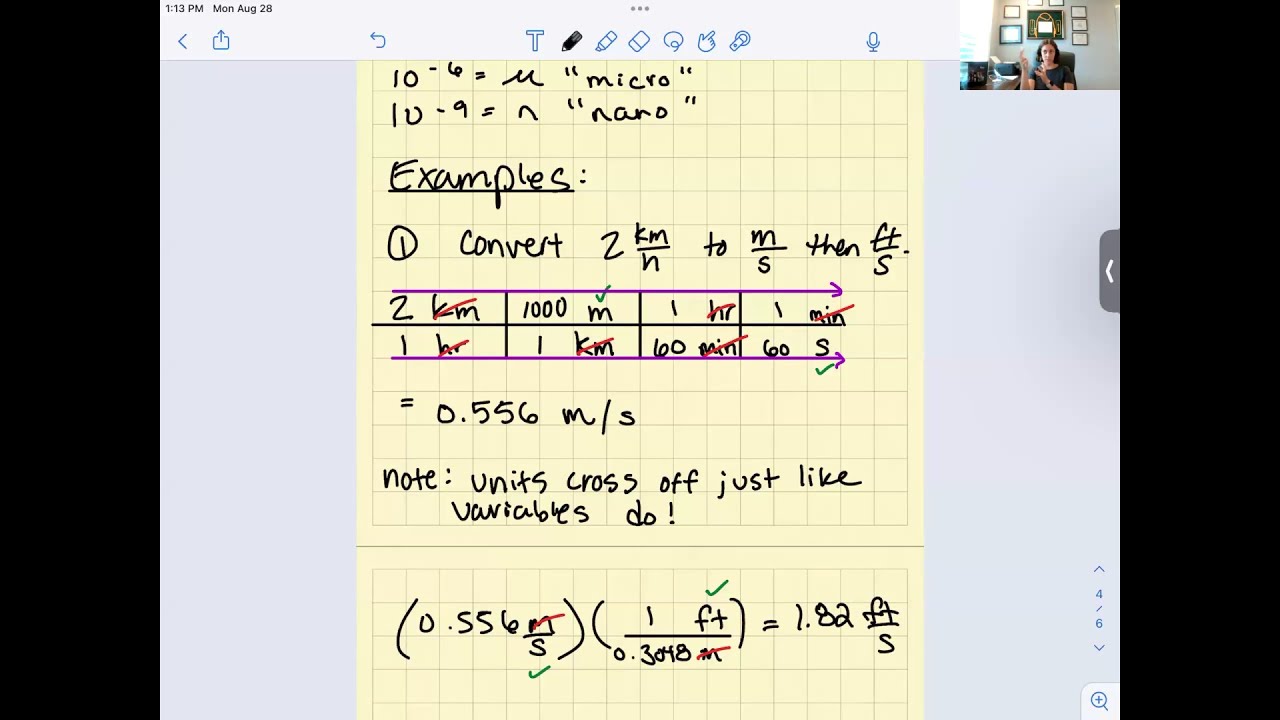 1:13 PM Mon Aug 28
10⁻⁶ = μ "micro"
10⁻⁹ = n "nano"
Examples:
① Convert 2 km/h to m/s then ft/s.
2 km | 1000 m | 1 hr | 1 min
1 hr | 1 km | 60 min | 60 s
= 0.556 m/s
note: units cross off just like
variables do!
(0.556 m/s) (1 ft / 0.3048 m) = 1.82 ft/s
4
/
6